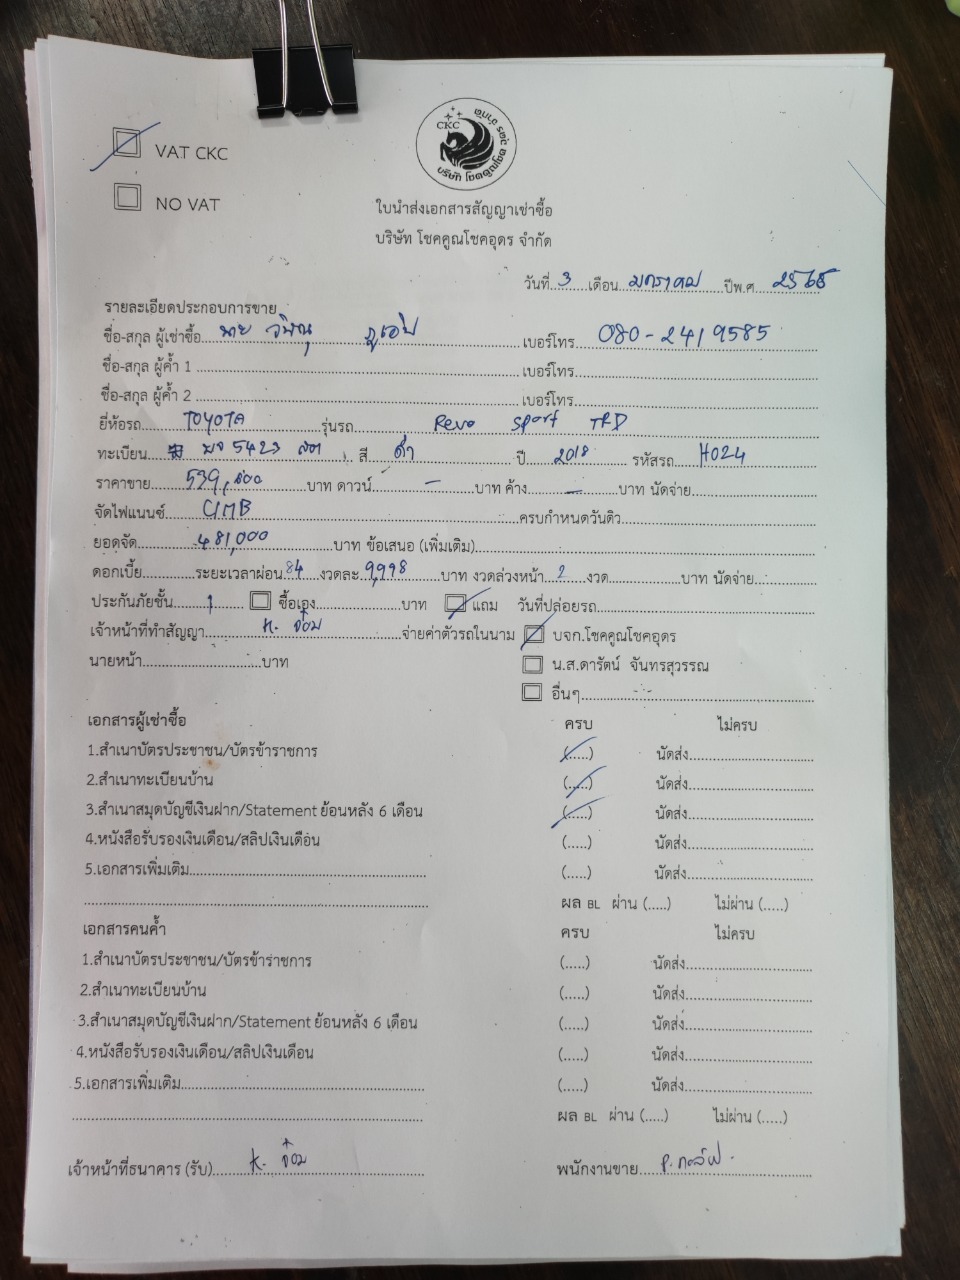 VAT CKC
NO VAT
CKC
บริษัท โชคคูณโชค อุดร จำกัด
ใบนำส่งเอกสารสัญญาเช่าซื้อ
บริษัท โชคคูณโชคอุดร จำกัด
วันที่ 3 เดือน มกราคม ปีพ.ศ. 2565
รายละเอียดประกอบการขาย
ชื่อ-สกุล ผู้เช่าซื้อ นาย เบอร์โทร 080-2419585
ชื่อ-สกุล ผู้ค้ำ 1 เบอร์โทร
ชื่อ-สกุล ผู้ค้ำ 2 เบอร์โทร
ยี่ห้อรถ TOYOTA รุ่นรถ Revo Sport TRD
ทะเบียน 5423 สี ดำ ปี 2018 รหัสรถ H024
ราคาขาย 539,000 บาท ดาวน์ - บาท ค้าง - บาท นัดจ่าย
จัดไฟแนนซ์ CIMB ครบกำหนดวันดิว
ยอดจัด 481,000 บาท ข้อเสนอ (เพิ่มเติม)
ดอกเบี้ย ระยะเวลาผ่อน 84 งวดละ 9,998 บาท งวดล่วงหน้า 2 งวด บาท นัดจ่าย
ประกันภัยชั้น 1 ซื้อเอง บาท แถม วันที่ปล่อยรถ
เจ้าหน้าที่ทำสัญญา K. จ๋อม จ่ายค่าตัวรถในนาม บจก.โชคคูณโชคอุดร
นายหน้า บาท น.ส.ดารัตน์ จันทรสุวรรณ
อื่นๆ
เอกสารผู้เช่าซื้อ ครบ ไม่ครบ
1.สำเนาบัตรประชาชน/บัตรข้าราชการ (.....) นัดส่ง
2.สำเนาทะเบียนบ้าน (.....) นัดส่ง
3.สำเนาสมุดบัญชีเงินฝาก/Statement ย้อนหลัง 6 เดือน (.....) นัดส่ง
4.หนังสือรับรองเงินเดือน/สลิปเงินเดือน (.....) นัดส่ง
5.เอกสารเพิ่มเติม (.....) นัดส่ง
ผล BL ผ่าน (.....) ไม่ผ่าน (.....)
เอกสารคนค้ำ ครบ ไม่ครบ
1.สำเนาบัตรประชาชน/บัตรข้าราชการ (.....) นัดส่ง
2.สำเนาทะเบียนบ้าน (.....) นัดส่ง
3.สำเนาสมุดบัญชีเงินฝาก/Statement ย้อนหลัง 6 เดือน (.....) นัดส่ง
4.หนังสือรับรองเงินเดือน/สลิปเงินเดือน (.....) นัดส่ง
5.เอกสารเพิ่มเติม (.....) นัดส่ง
ผล BL ผ่าน (.....) ไม่ผ่าน (.....)
เจ้าหน้าที่ธนาคาร (รับ) K. จ๋อม พนักงานขาย